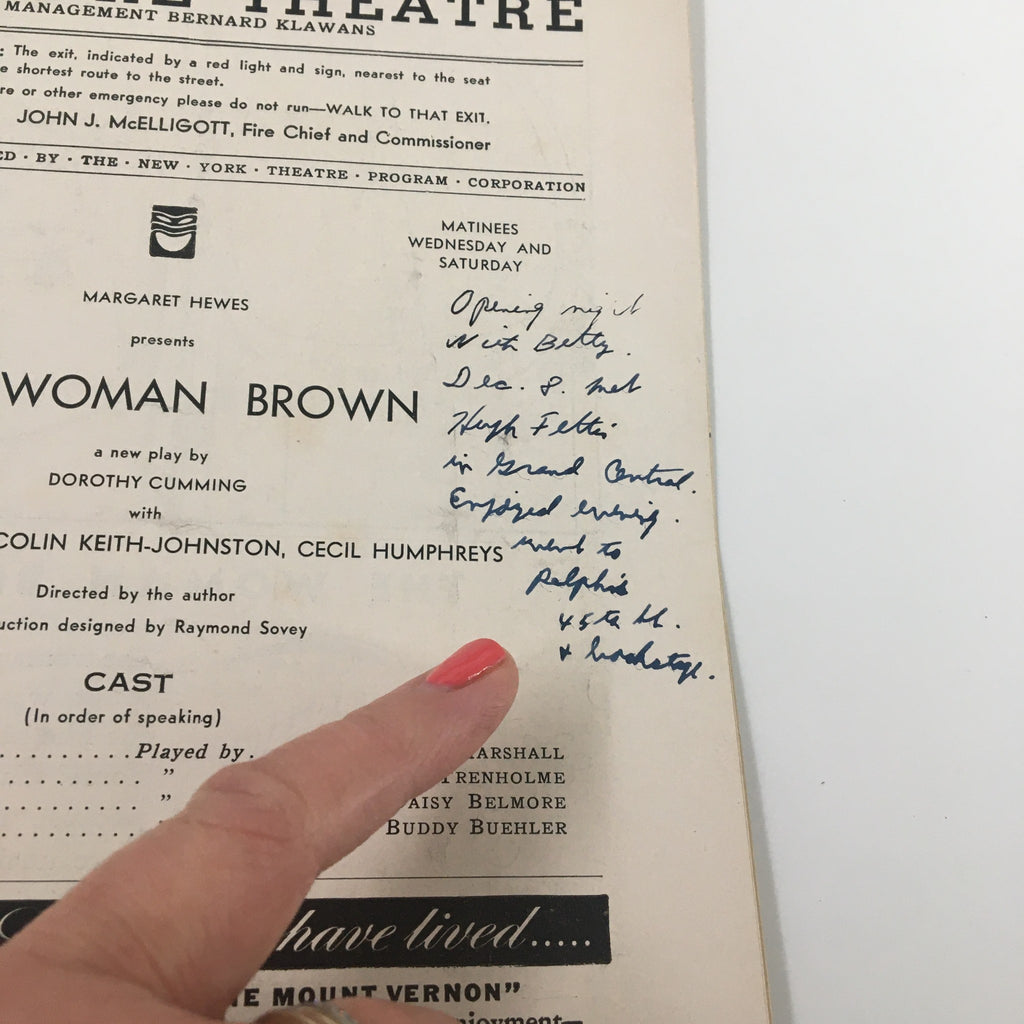 THEATRE
MANAGEMENT BERNARD KLAWANS
: The exit, indicated by a red light and sign, nearest to the seat
shortest route to the street.
or other emergency please do not run—WALK TO THAT EXIT.
JOHN J. McELLIGOTT, Fire Chief and Commissioner
· BY · THE · NEW · YORK · THEATRE · PROGRAM · CORPORATION
MATINEES
WEDNESDAY AND
SATURDAY
MARGARET HEWES
presents
WOMAN BROWN
a new play by
DOROTHY CUMMING
with
COLIN KEITH-JOHNSTON, CECIL HUMPHREYS
Directed by the author
designed by Raymond Sovey
Opening night
With Betty.
Dec. 8. met
Hugh
in Grand Central.
Enjoyed evening.
went to
Ralph's
45th
& backstage.
CAST
(In order of speaking)
Played by
ARSHALL
" TRENHOLME
" AISY BELMORE
" BUDDY BUEHLER
have lived.....
MOUNT VERNON"